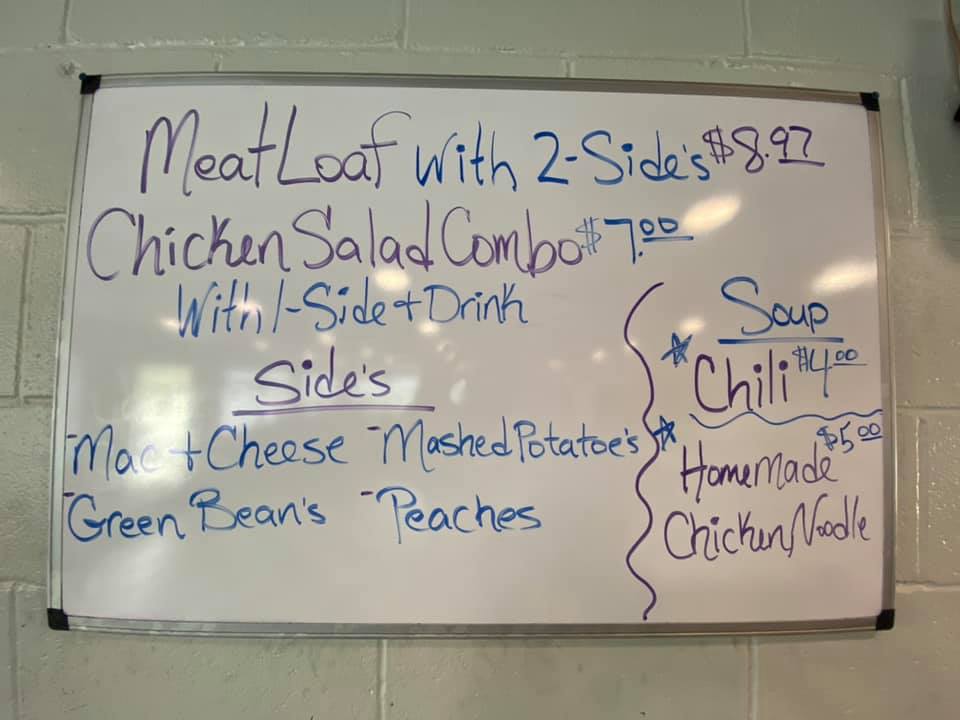 MeatLoaf with 2-Side's $8.97
Chicken Salad Combo $7.00
With 1-Side + Drink
Side's
-Mac + Cheese -Mashed Potatoe's
-Green Bean's -Peaches
Soup
Chili $4.00
$5.00
Homemade
Chicken Noodle